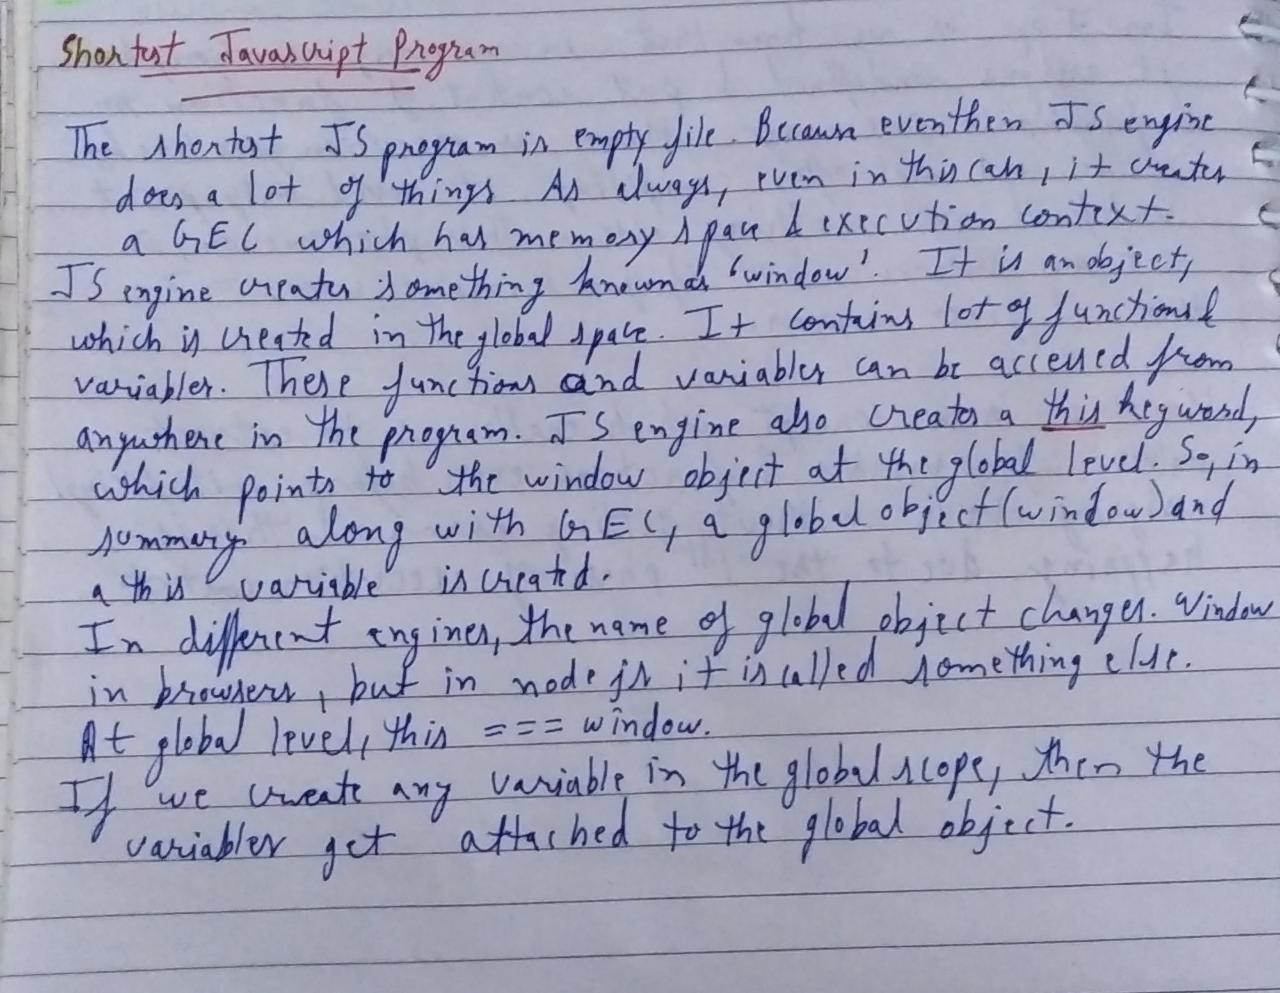 Shortest Javascript Program
The shortest JS program is empty file. Because eventhen JS engine
does a lot of things. As always, even in this case, it creates
a GEC which has memory space & execution context.
JS engine creates something known as 'window'. It is an object,
which is created in the global space. It contains lot of functions &
variables. These functions and variables can be accessed from
anywhere in the program. JS engine also creates a this keyword,
which points to the window object at the global level. So, in
summary along with GEC, a global object (window) and
a this variable is created.
In different engines, the name of global object changes. Window
in browsers, but in node js it is called something else.
At global level, this === window.
If we create any variable in the global scope, then the
variables get attached to the global object.